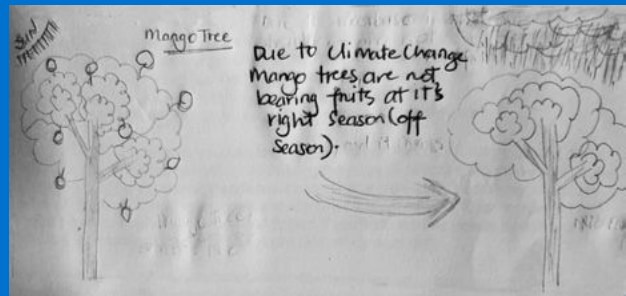 SUN
Mango Tree
Due to Climate Change
Mango trees are not
bearing fruits at it's
right season (off
Season).